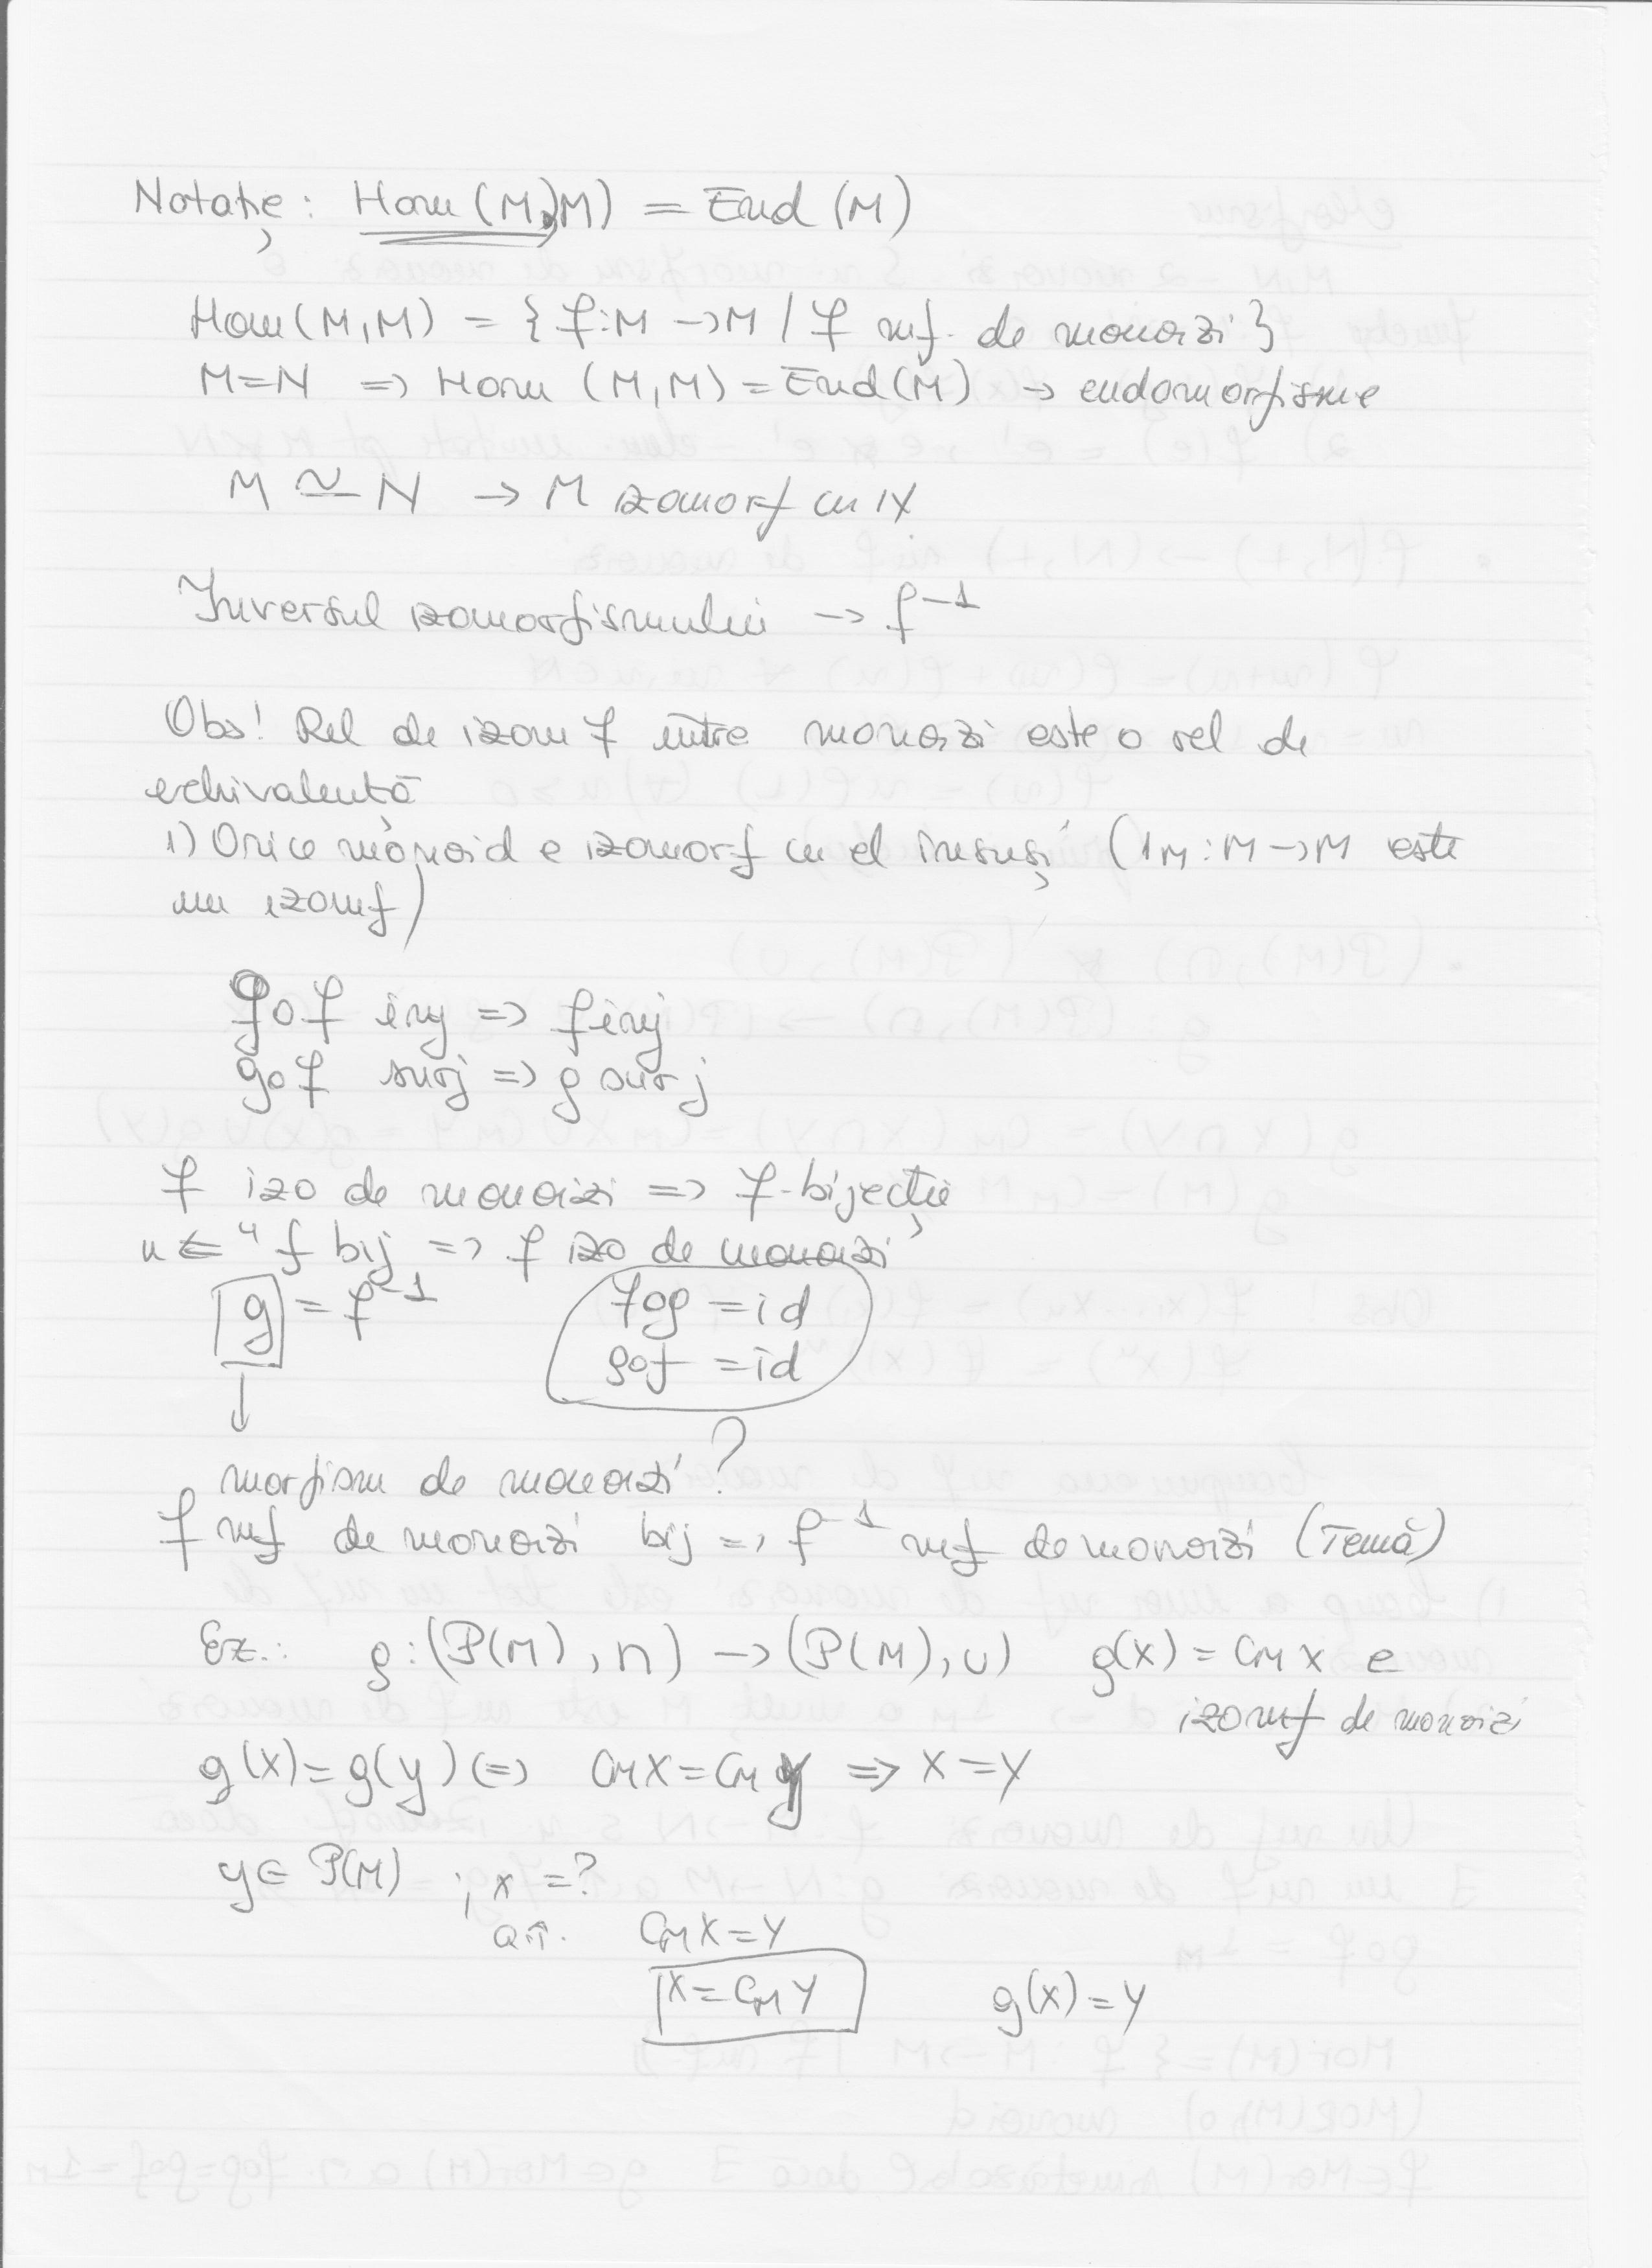 Notație: Hom(M,M) = End(M)
Hom(M,M) = {f:M→M / f mf. de monoizi}
M=N => Hom (M,M) = End(M) → endomorfisme
M ≃ N → M izomorf cu N
Inversul izomorfismului → f⁻¹
Obs! Rel de izom f între monoizi este o rel de
echivalență
1) Orice monoid e izomorf cu el însuși (1_M : M→M este
un izomf)
g∘f inj => f inj
g∘f surj => g surj
f izo de monoizi => f-bijecție
"⇐" f bij => f izo de monoizi
g = f⁻¹ f∘g = id
g∘f = id
↓
morfism de monoizi ?
f mf de monoizi bij => f⁻¹ mf de monoizi (Temă)
Ex.: g:(P(M),∩) → (P(M),∪) g(X) = C_M X e
izomf de monoizi
g(X) = g(y) <=> C_M X = C_M Y => X = Y
y ∈ P(M) ; x = ?
a.î. C_M X = Y
X = C_M Y g(X) = Y